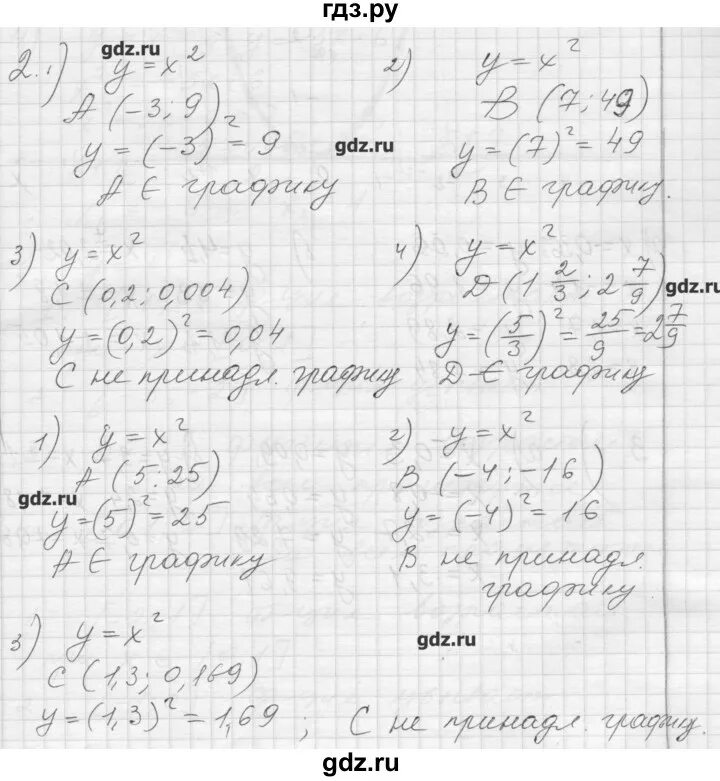 гдз.ру
2. 1) y = x²
A (-3; 9)
y = (-3)² = 9
A ∈ графику
2) y = x²
B (7; 49)
y = (7)² = 49
B ∈ графику.
3) y = x²
C (0,2; 0,004)
y = (0,2)² = 0,04
C не принадл. графику
4) y = x²
D (1 2/3; 2 7/9)
y = (5/3)² = 25/9 = 2 7/9
D ∈ графику
1) y = x²
A (5; 25)
y = (5)² = 25
A ∈ графику
2) y = x²
B (-4; -16)
y = (-4)² = 16
B не принадл.
графику
3) y = x²
C (1,3; 0,169)
y = (1,3)² = 1,69 ; C не принадл. графику.
gdz.ru
gdz.ru
gdz.ru
gdz.ru
gdz.ru
gdz.ru